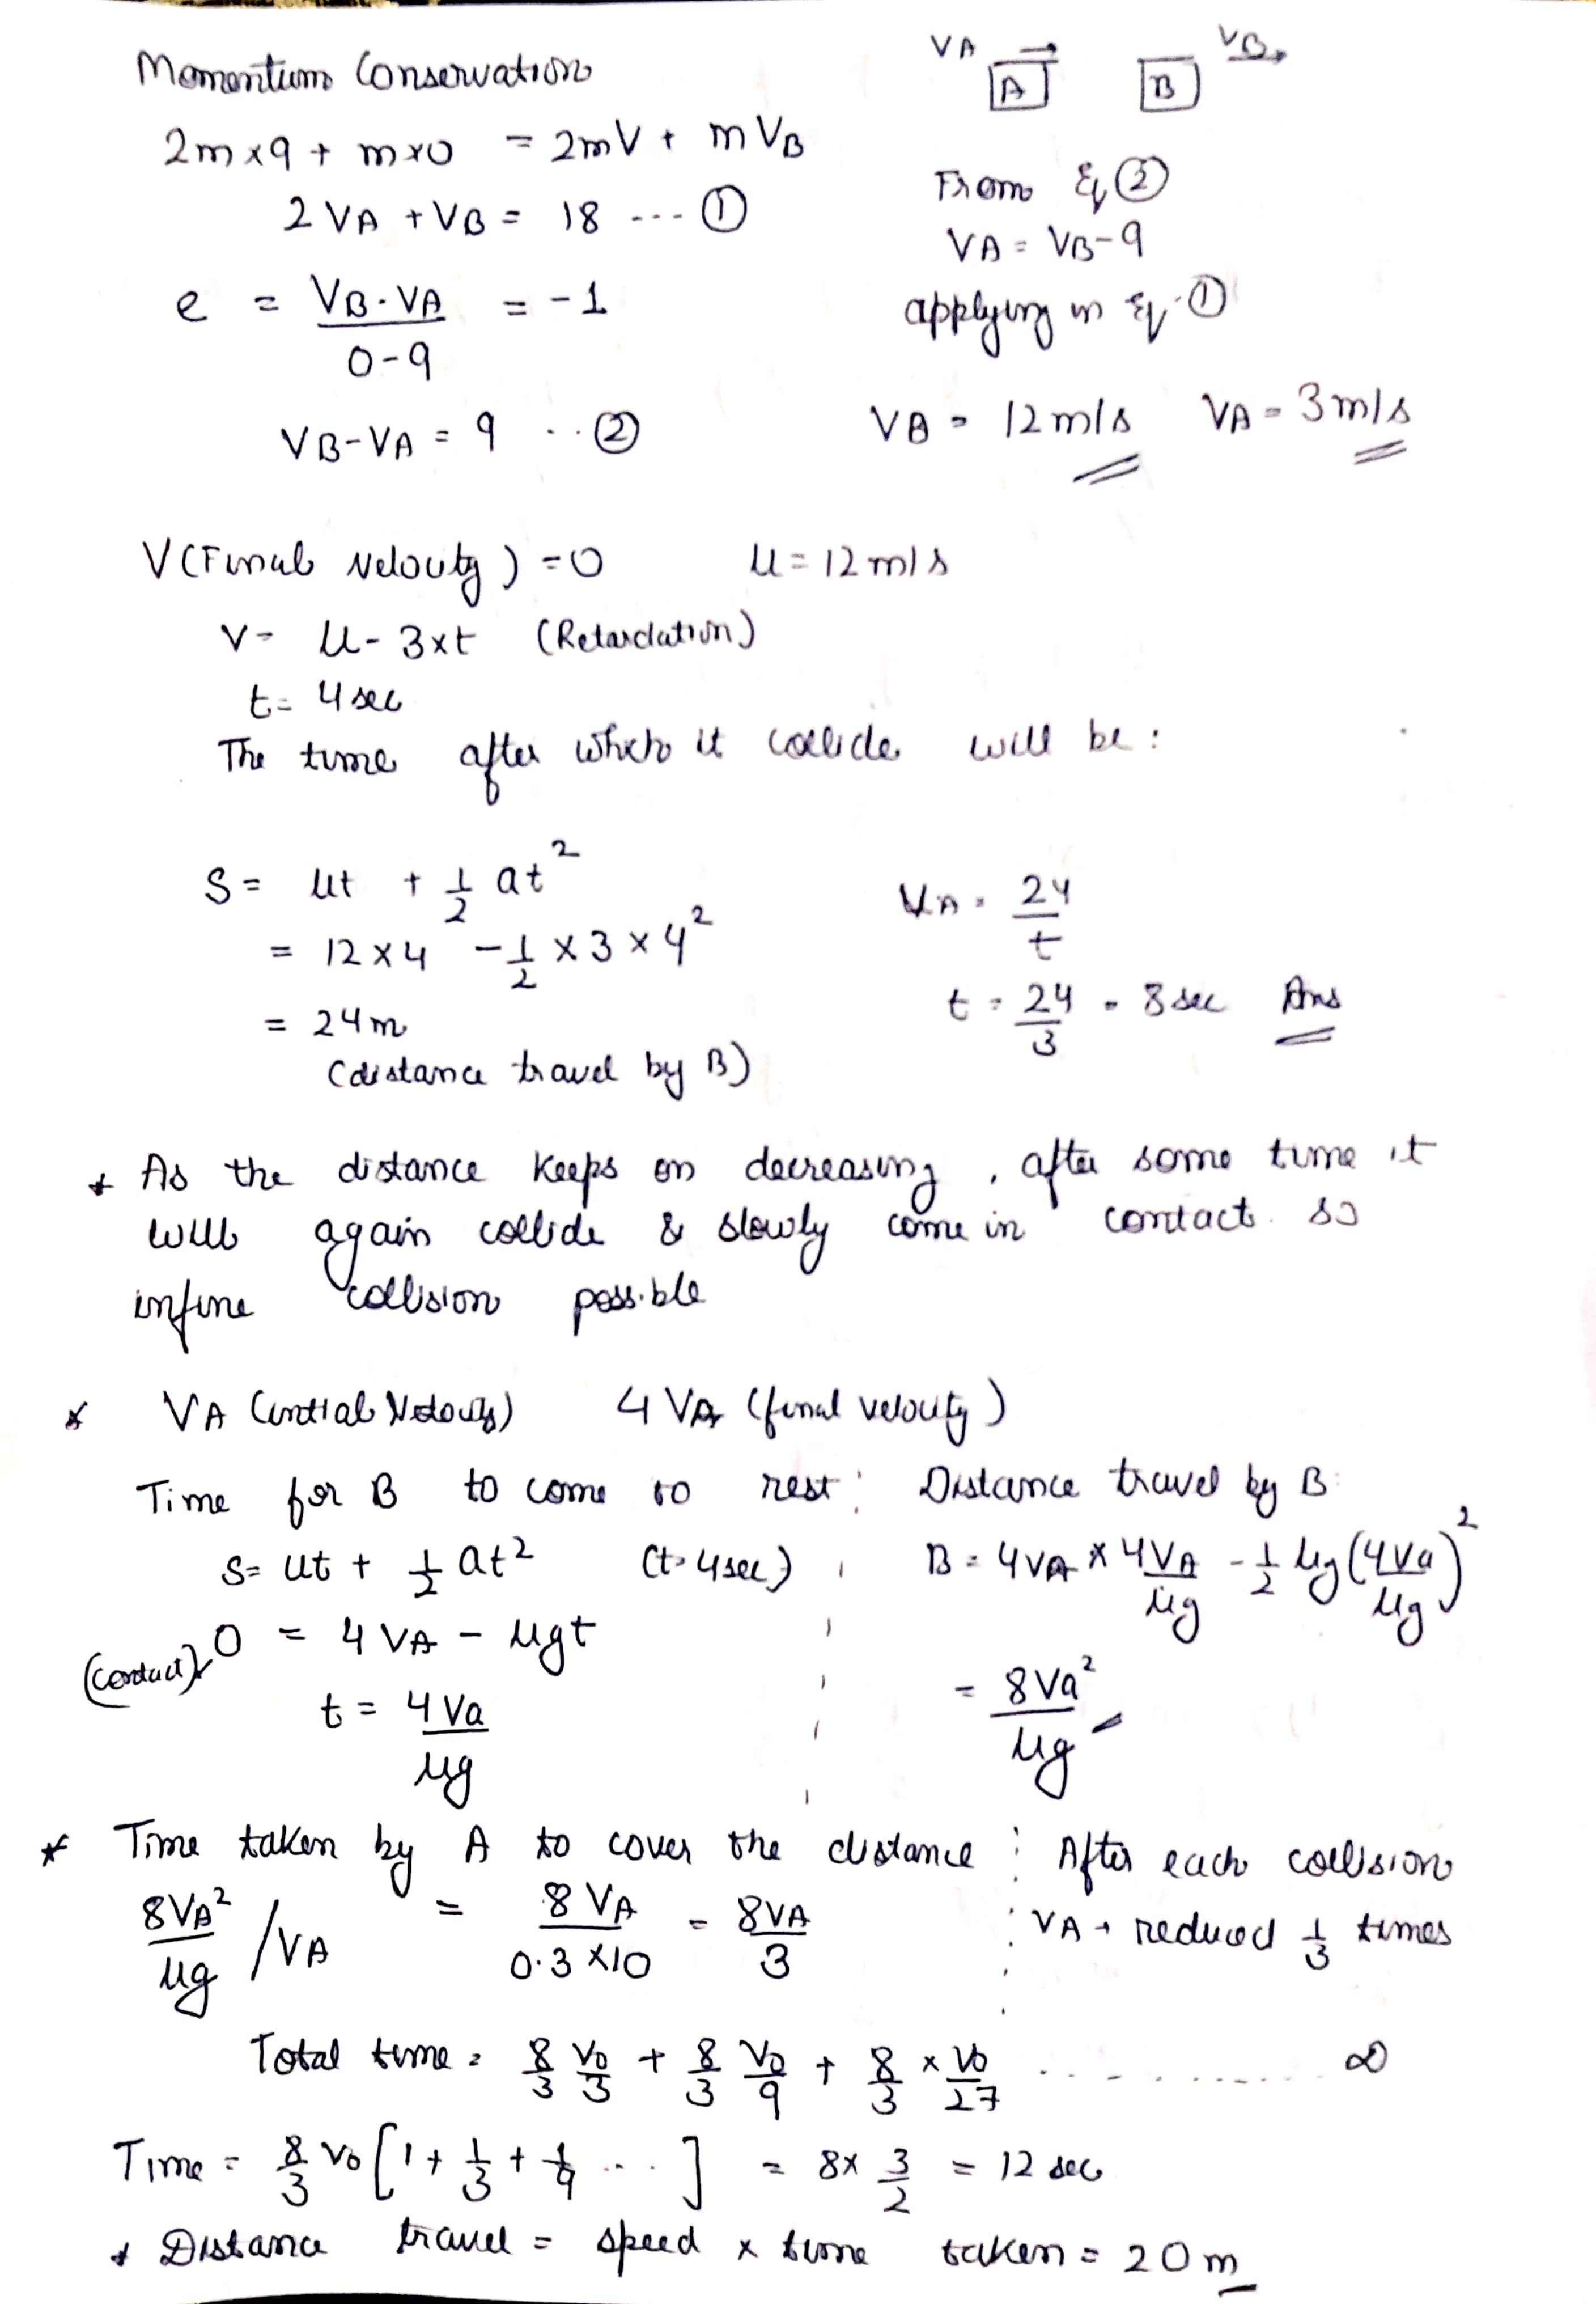 Momentum Conservation
2m×9 + m×0 = 2mV + mVB
2VA + VB = 18 --- ①
e = VB-VA / 0-9 = -1
VB-VA = 9 .. ②
VA VB
A B
From Eq ②
VA = VB-9
applying in Eq. ①
VB = 12 m/s VA = 3 m/s
V(Final Velocity) = 0 u = 12 m/s
V = u - 3×t (Retardation)
t = 4 sec
The time after which it collide will be :
S = ut + 1/2 at²
= 12×4 - 1/2 × 3 × 4²
= 24m
(distance travel by B)
VA = 24/t
t = 24/3 = 8 sec Ans
* As the distance keeps on decreasing, after some time it
will again collide & slowly come in contact. so
infine collision possible
* VA (intial Velouty) 4 VA (final velouty)
Time for B to come to rest :
S = ut + 1/2 at² (t=4sec)
(contact) 0 = 4VA - μgt
t = 4Va/μg
Distance travel by B :
B = 4VA × 4VA/μg - 1/2 μg (4Va/μg)²
= 8Va²/μg
* Time taken by A to cover the distance
8VA²/μg /VA = 8VA/0.3×10 = 8VA/3
After each collision
VA → reduced 1/3 times
Total time = 8/3 V0/3 + 8/3 V0/9 + 8/3 × V0/27 ............ ∞
Time = 8/3 V0 [1 + 1/3 + 1/9 ...] = 8× 3/2 = 12 sec
* Distance travel = speed × time taken = 20 m